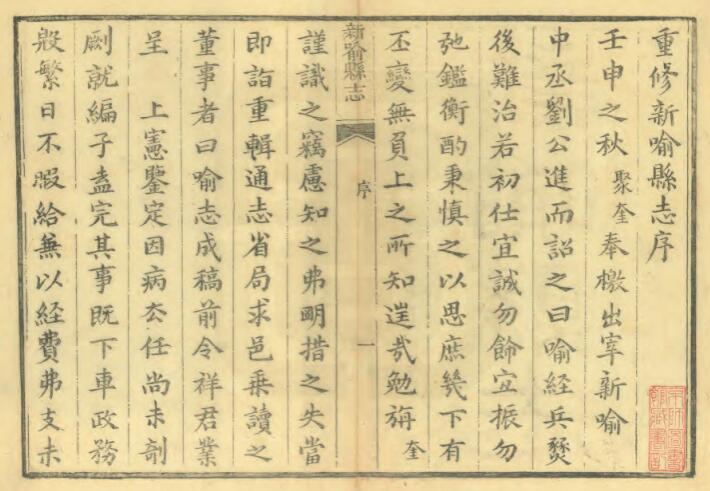 重修新喻縣志序
壬申之秋聚奎奉檄出宰新喻
中丞劉公進而詔之曰喻經兵燹
後難治若初仕宜誠勿餙宜振勿
弛鑑衡酌秉慎之以思庶幾下有
丕變無負上之所知逞哉勉旃奎
新喻縣志
序
一
謹識之竊慮知之弗明措之失當
即詣重輯通志省局求邑乘讀之
董事者曰喻志成稿前令祥君業
呈 上憲鑒定因病厺任尚未剞
劂就編子盍完其事既下車政務
殷繁日不暇給無以經費弗支未